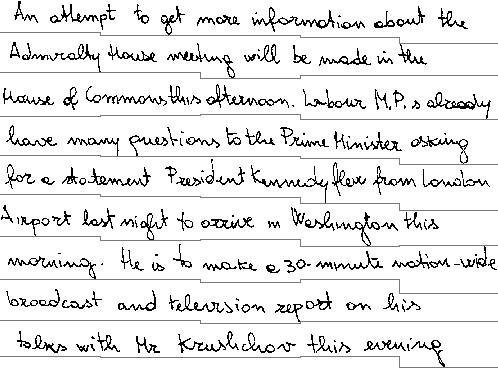 An attempt to get more information about the
Admiralty House meeting will be made in the
House of Commons this afternoon. Labour M.P.s already
have many questions to the Prime Minister asking
for a statement President Kennedy flew from London
Airport last night to arrive in Washington this
morning. He is to make a 30-minute nation-wide
broadcast and television report on his
talks with Mr Krushchov this evening